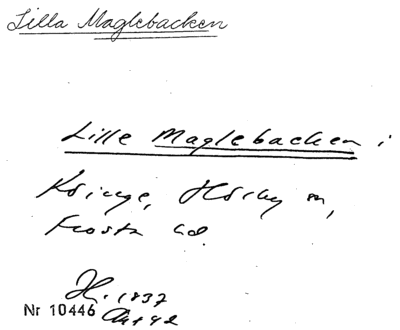 Lilla Maglebacken
Lille Maglebacken i
Köinge, Hörby sn,
Frosta hd.
H. 1837
Nr 10446